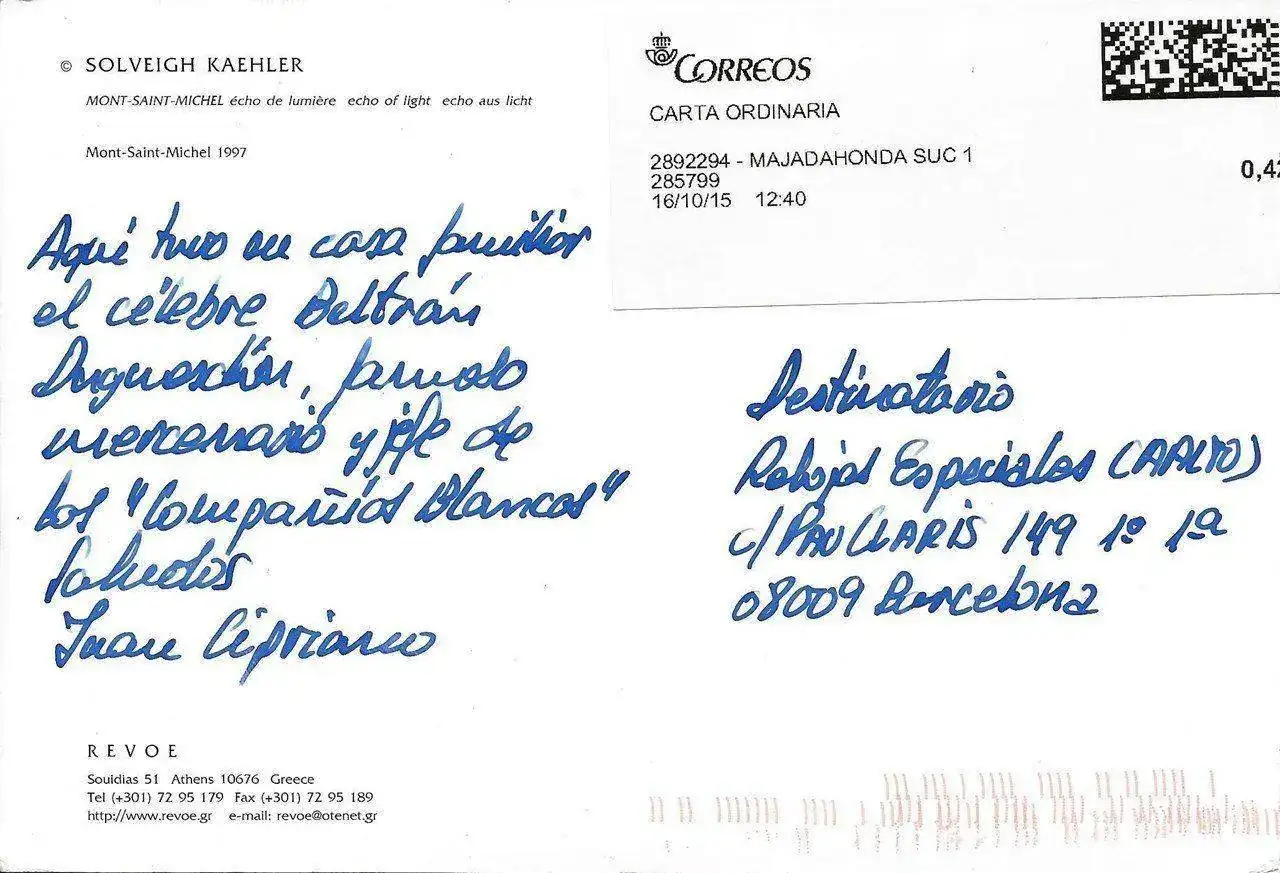 © SOLVEIGH KAEHLER
MONT-SAINT-MICHEL écho de lumière echo of light echo aus licht
Mont-Saint-Michel 1997
Aquí tuvo su casa familiar
el célebre Beltrán
Duguesclín, famoso
mercenario y jefe de
los "Compañías Blancas"
Saludos
Juan Cipriano
REVOE
Souidias 51 Athens 10676 Greece
Tel (+301) 72 95 179 Fax (+301) 72 95 189
http://www.revoe.gr e-mail: revoe@otenet.gr
CORREOS
CARTA ORDINARIA
2892294 - MAJADAHONDA SUC 1
285799
16/10/15 12:40
0,42
Destinatario
Relojes Especiales
c/ PAU CLARIS 149 1º 1ª
08009 Barcelona